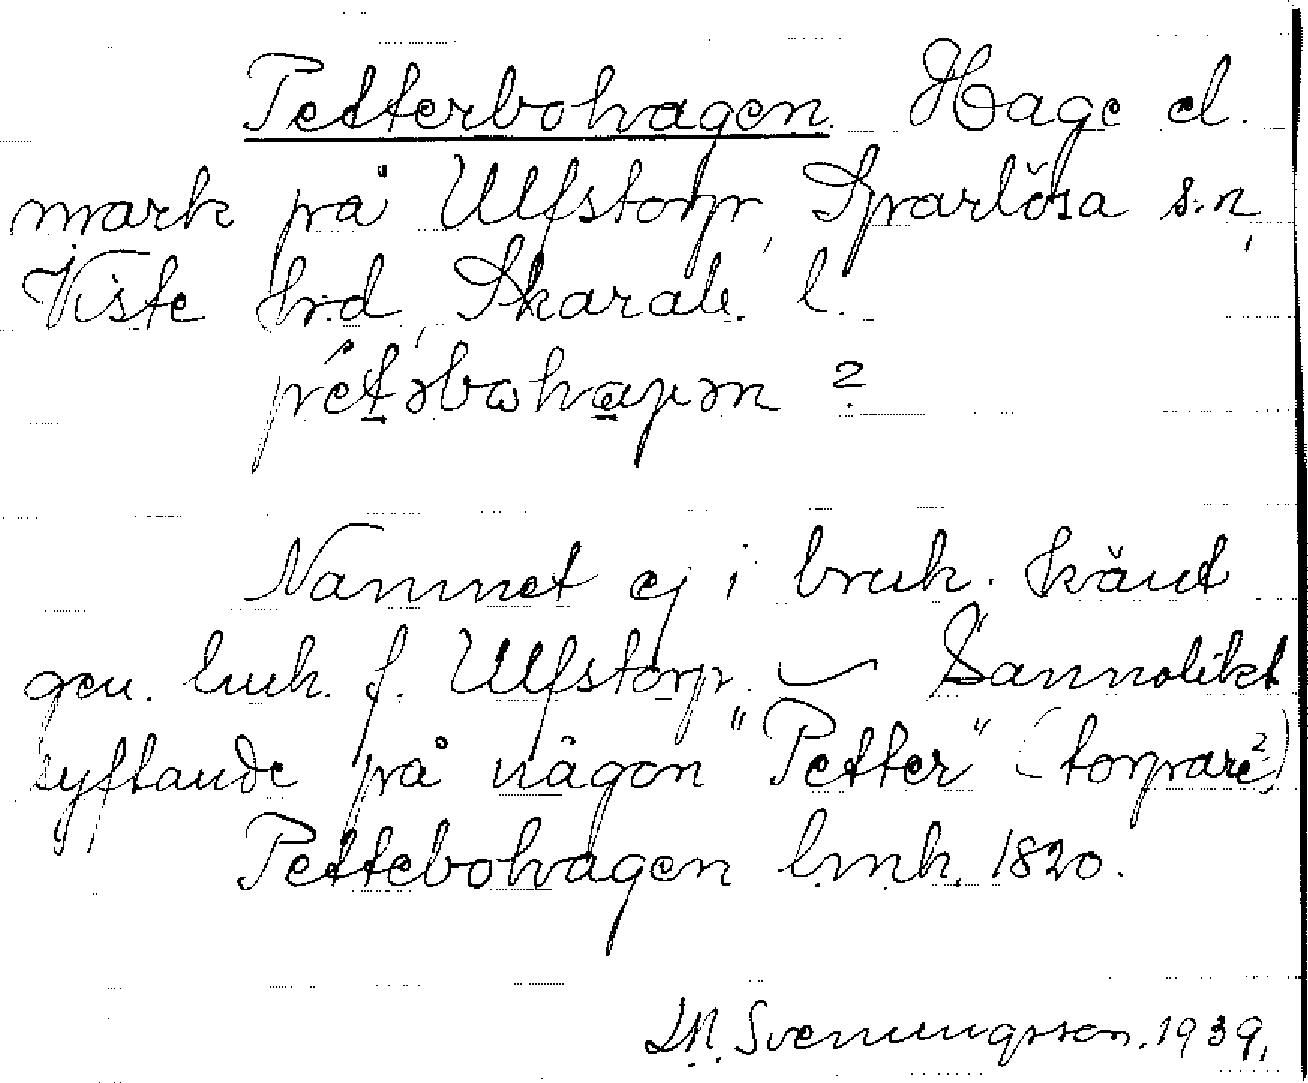 Petterbohagen. Hage el.
mark på Ulfstorp, Sparlösa s:n,
Viste hrd, Skarab. l.
pétəbωhaγən ?
Namnet ej i bruk. Känt
gen. lmk. f. Ulfstorp. – Sannolikt
syftande på någon "Petter" (torpare?)
Pettebohagen lmk. 1820.
Svenungsson. 1939.